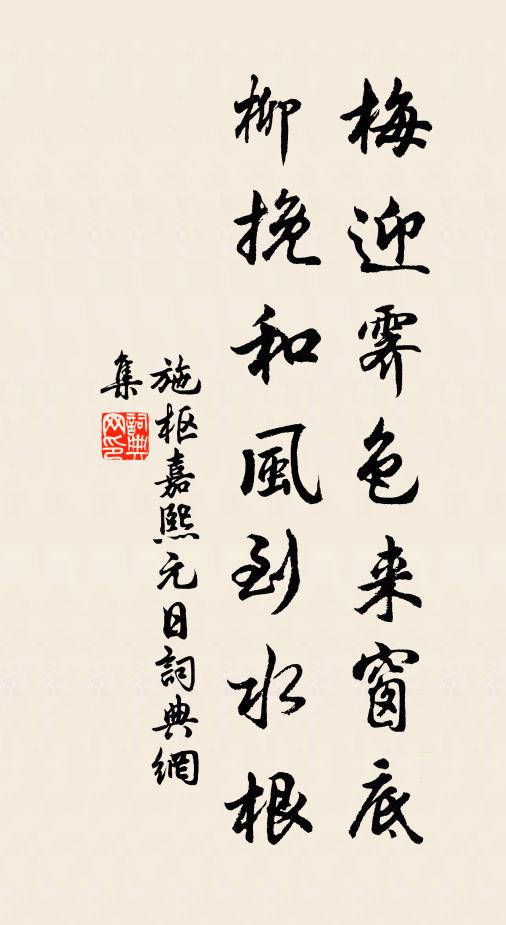 梅迎霽色来窗底
柳挽和風到水根
施枢嘉熙元日詞典網
集
詞典
网印